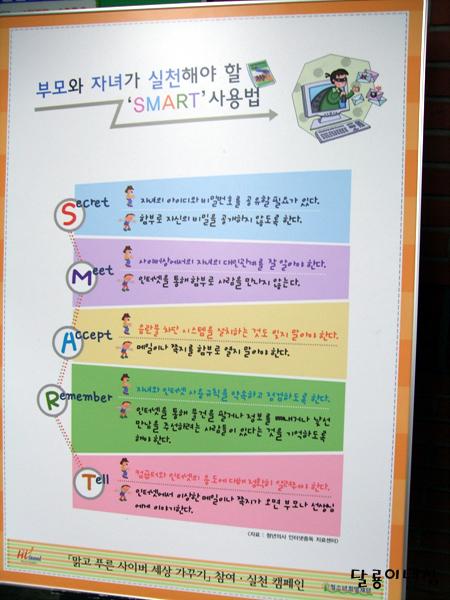 부모와 자녀가 실천해야 할
'SMART' 사용법
Secret
자녀의 아이디와 비밀번호를 공유할 필요가 있다.
함부로 자신의 비밀을 공개하지 않도록 한다.
Meet
사이버상에서의 자녀의 대인관계를 잘 알아야 한다.
인터넷을 통해 함부로 사람을 만나지 않는다.
Accept
음란물 차단 시스템을 설치하는 것도 잊지 말아야 한다.
메일이나 쪽지를 함부로 열지 말아야 한다.
Remember
자녀와 인터넷 사용규칙을 약속하고 점검하도록 한다.
인터넷을 통해 물건을 팔거나 정보를 빼내거나 낯선
만남을 주선하려는 사람들이 있다는 것을 기억하도록
해야 한다.
Tell
컴퓨터와 인터넷의 용도에 대해 정확히 알려줘야 한다.
인터넷에서 이상한 메일이나 쪽지가 오면 부모나 선생님
에게 이야기한다.
(자료 : 청년의사 인터넷중독 치료센터)
「맑고 푸른 사이버 세상 가꾸기」 참여·실천 캠페인
청소년희망재단